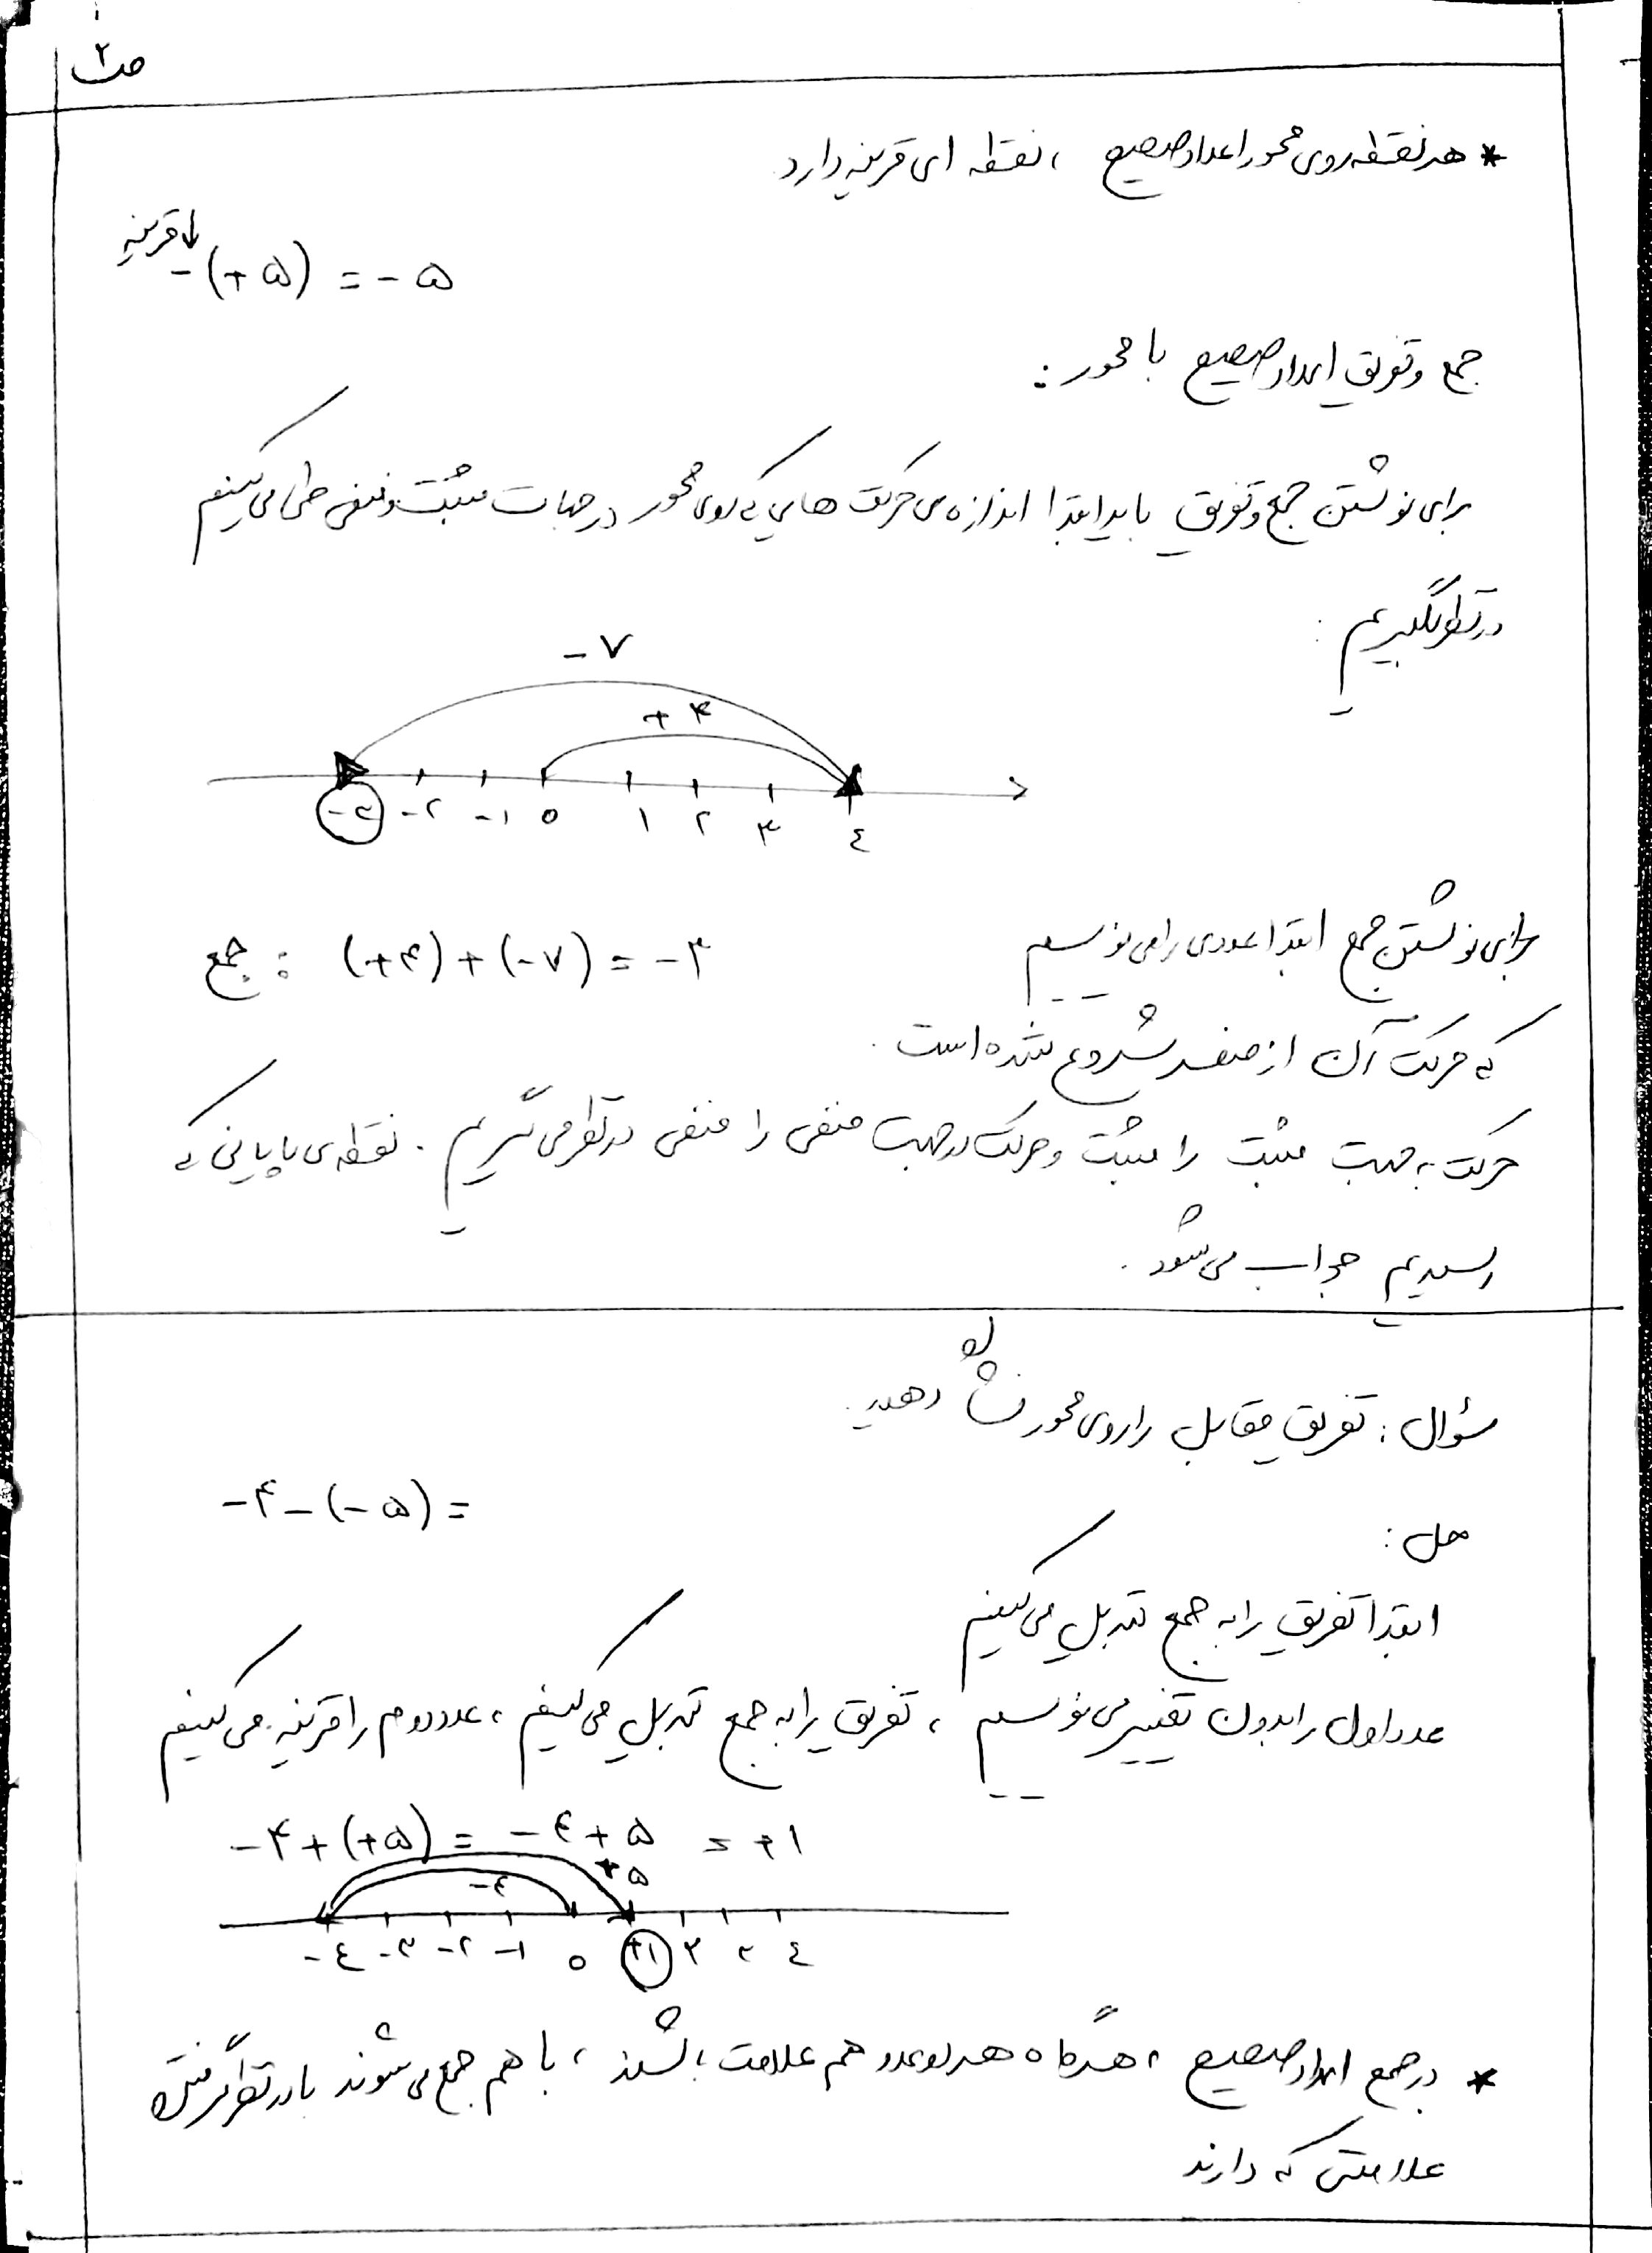 ص۲
* هر نقطه روی محور اعداد صحیح ، نقطه ای قرینه دارد.
قرینه
-(+۵) = -۵
جمع و تفریق اعداد صحیح با محور :
برای نوشتن جمع و تفریق باید ابتدا اندازه ی حرکت هایی که روی محور در جهات مثبت و منفی طی می کنیم
در نظر بگیریم :
-۷
+۴
-۳ -۲ -۱ ۰ ۱ ۲ ۳ ۴
برای نوشتن جمع ابتدا عددی را می نویسیم
جمع : (+۴)+(-۷) = -۳
که حرکت آن از صفر شروع شده است .
حرکت به جهت مثبت را مثبت و حرکت در جهت منفی را منفی در نظر می گیریم . نقطه ی پایانی که
رسیدیم جواب می شود .
سؤال : تفریق مقابل را روی محور نشان دهید.
-۴-(-۵) =
حل :
ابتدا تفریق را به جمع تبدیل می کنیم
عدد اول را بدون تغییر می نویسیم ، تفریق را به جمع تبدیل می کنیم ، عدد دوم را قرینه می کنیم
-۴+(+۵) = -۴+۵ = +۱
+۵
-۴
-۴ -۳ -۲ -۱ ۰ +۱ ۲ ۳ ۴
* در جمع اعداد صحیح ، هرگاه هر دو عدد هم علامت باشند ، با هم جمع می شوند با در نظر گرفتن
علامتی که دارند